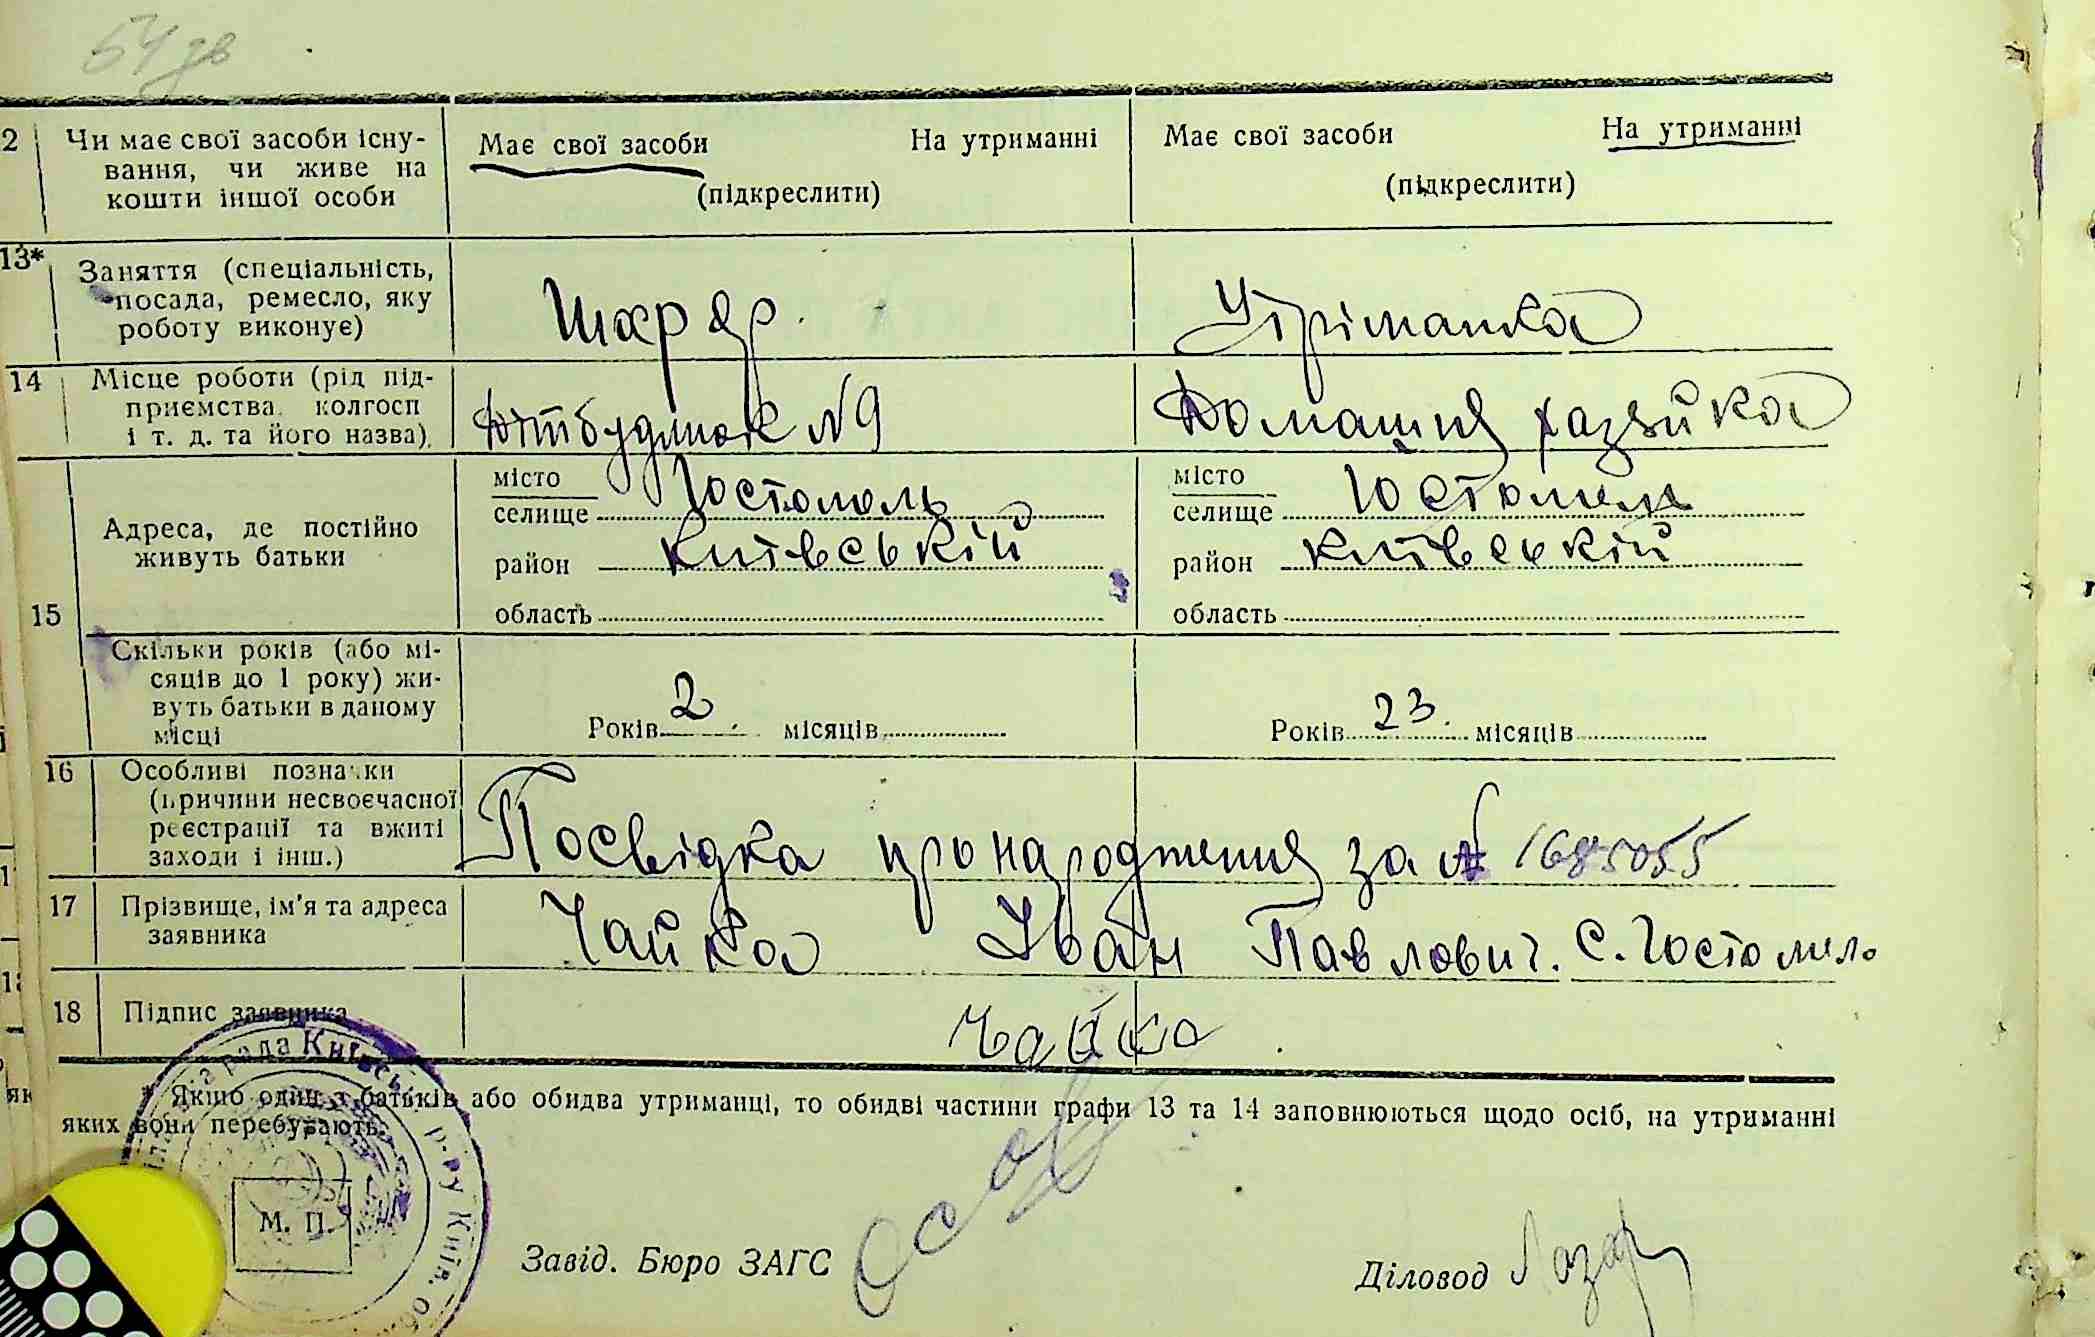 54 зв
2 Чи має свої засоби існу-
вання, чи живе на
кошти іншої особи
Має свої засоби На утриманні
(підкреслити)
Має свої засоби На утриманні
(підкреслити)
13* Заняття (спеціальність,
посада, ремесло, яку
роботу виконує)
Утріманка
14 Місце роботи (рід під-
приємства, колгосп
і т. д. та його назва).
Дітбудинок №9
Домашня хазяйка
15 Адреса, де постійно
живуть батьки
місто
селище Гостомль
район Київській
область
місто
селище Гостомель
район Київській
область
Скільки років (або мі-
сяців до 1 року) жи-
вуть батьки в даному
місці
Років 2. місяців
Років 23. місяців
16 Особливі познаки
(причини несвоєчасної
реєстрації та вжиті
заходи і інш.)
Посвідка про народження за № 1685055
17 Прізвище, ім'я та адреса
заявника
Чайка Іван Павлович. С. Гостомель
18 Підпис заявника
Чайка
* Якщо один з батьків або обидва утриманці, то обидві частини графи 13 та 14 заповнюються щодо осіб, на утриманні
яких вони перебувають.
рада Київськ. р-ру Київ. об
М. П.
Завід. Бюро ЗАГС
Діловод Лазар